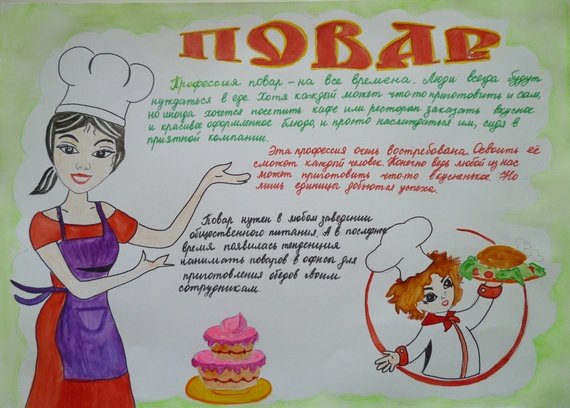 ПОВАР
Профессия повар – на все времена. Люди всегда будут
нуждаться в еде. Хотя каждый может что-то приготовить и сам,
но иногда хочется посетить кафе или ресторан заказать вкусное
и красивое оформленное блюдо, и просто наслаждаться им, сидя в
приятной компании.
Эта профессия очень востребована. Освоить её
сможет каждой человек. Конечно ведь любой из нас
может приготовить что-то вкусненькое. Но
лишь единицы добьются успеха.
Повар нужен в любом заведении
общественного питания. А в последнее
время появилась тенденция
нанимать поваров в офисы для
приготовления обедов своим
сотрудникам.